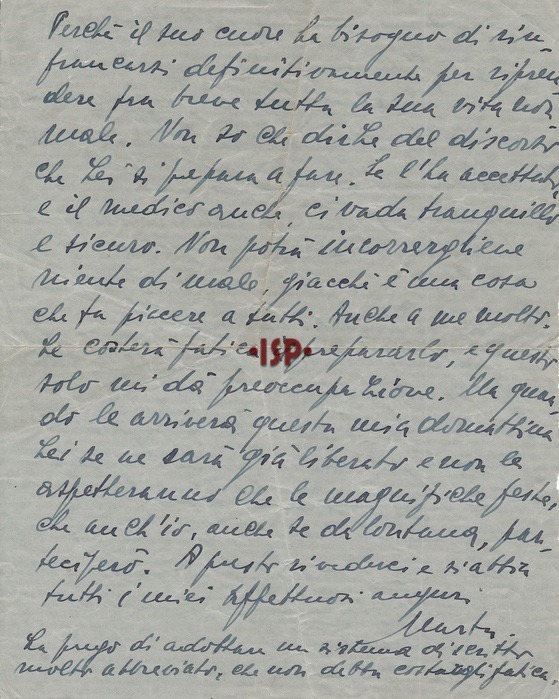 Perchè il suo cuore ha bisogno di rin
francarsi definitivamente per ripren
dere fra breve tutta la sua vita nor
male. Non so che dirLe del discorso
che Lei si prepara a fare. Se l'ha accettato
e il medico anche, ci vada tranquillo
e sicuro. Non potrà incorrergliene
niente di male, giacchè è una cosa
che fa piacere a tutti. Anche a me molto.
Le costerà fatica prepararlo, e questo
·ISP·
solo mi dà preoccupazione. Ma quan
do le arriverà questa mia domattina
Lei se ne sarà già liberato e non le
aspetteranno che le magnifiche feste,
che anch'io, anche se da lontana, par-
teciperò. A presto rivederci e si abbia
tutti i miei affettuosi auguri
Marta.
La prego di adottare un sistema di scritto
molto abbreviato, che non debba costargli fatica.